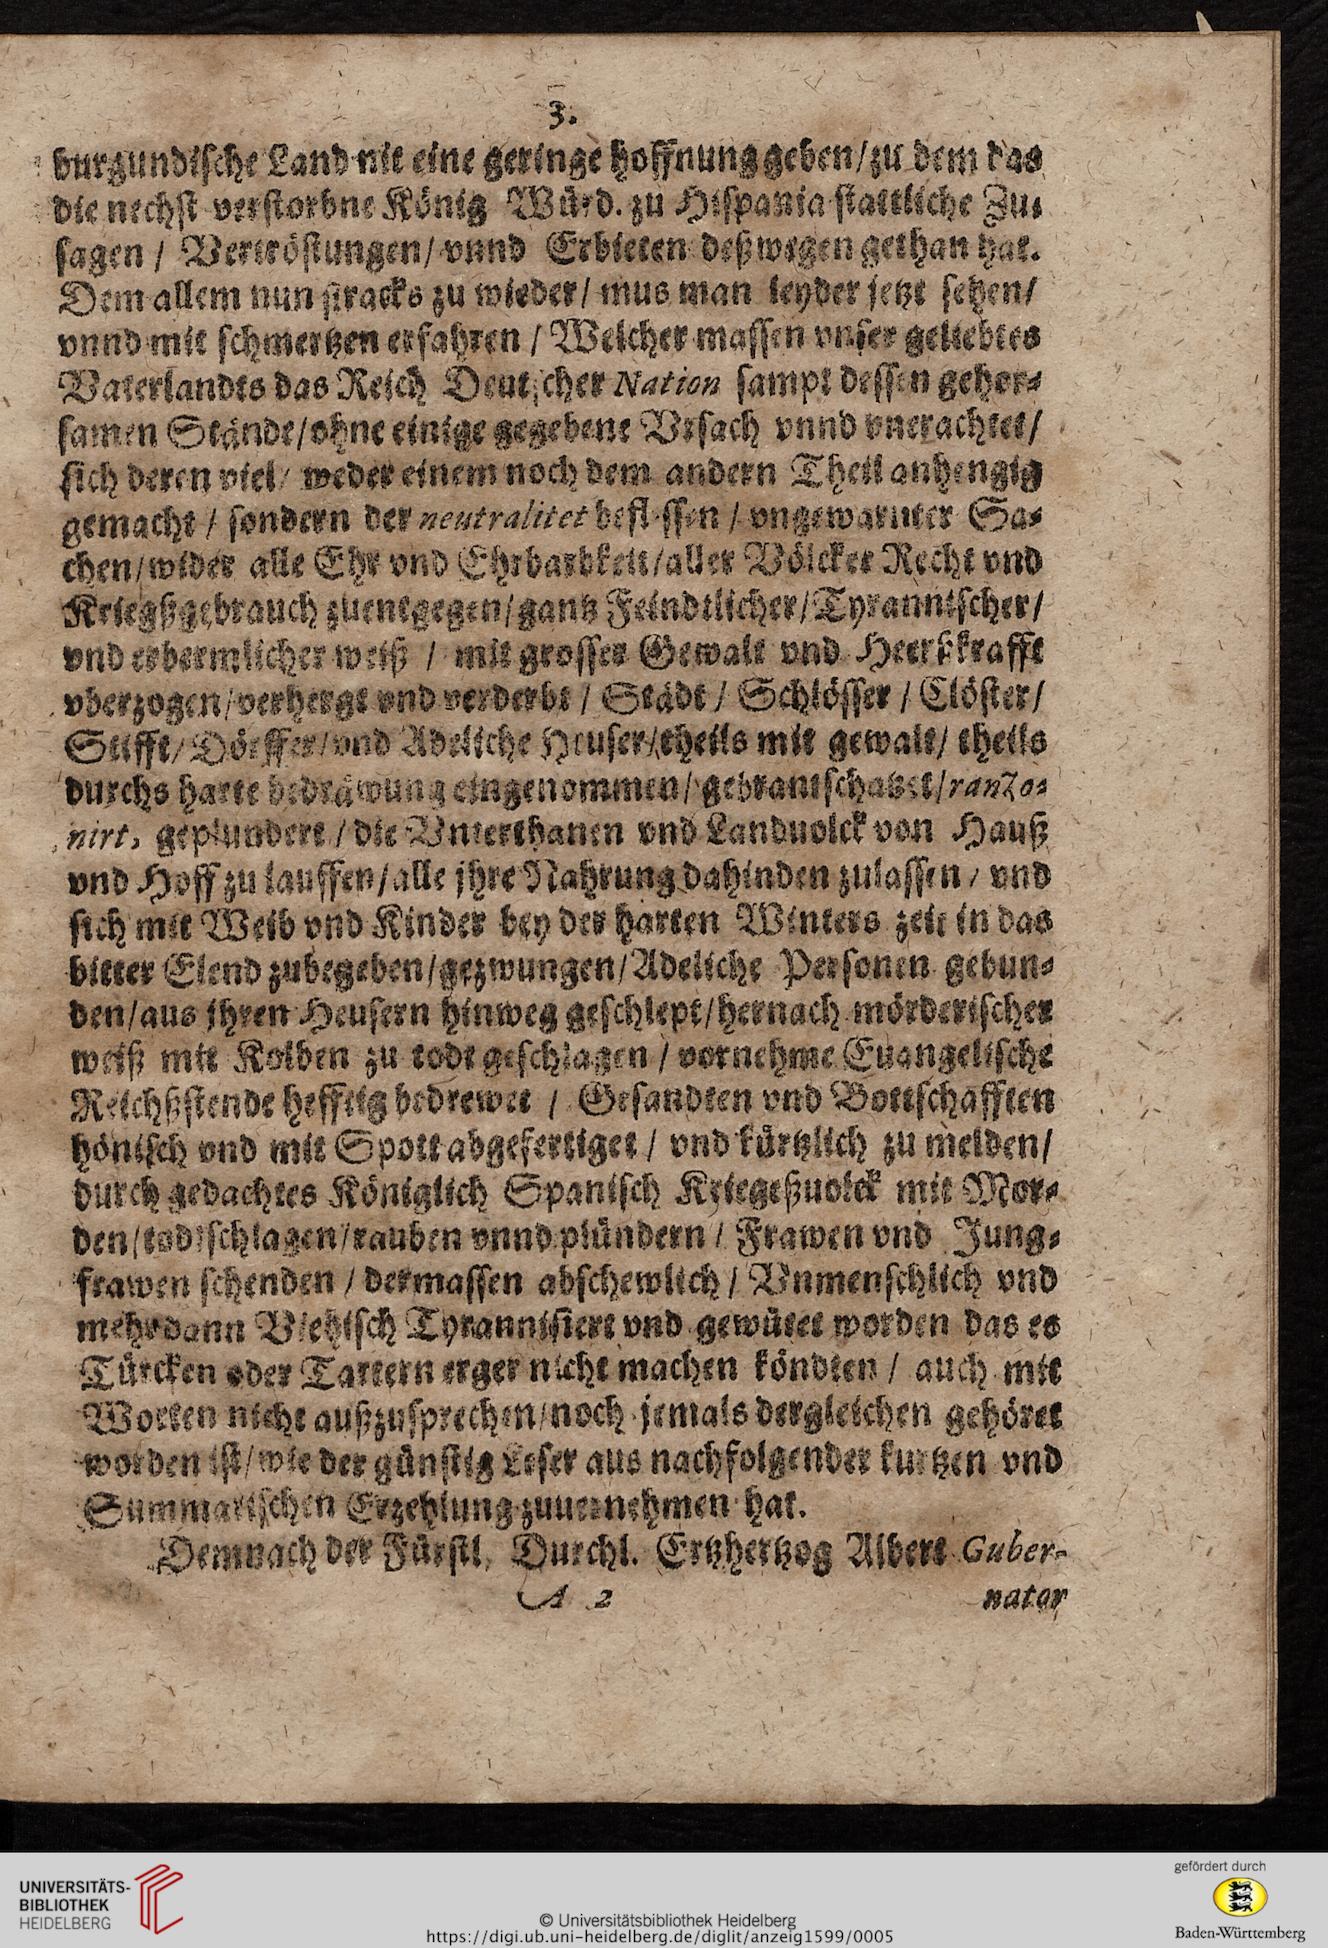 3.
burgundische Land nit eine geringe hoffnung geben/zu dem das
die nechst verstorbne König Würd. zu Hispania stattliche Zu-
sagen / Vertröstungen/ vnnd Erbieten deßwegen gethan hat.
Dem allem nun stracks zu wieder/ mus man leyder jetzt sehen/
vnnd mit schmertzen erfahren / Welcher massen vnser geliebtes
Vaterlandts das Reich Deutscher Nation sampt dessen gehor-
samen Stände/ohne einige gegebene Vrsach vnnd vnerachtet/
sich deren viel/ weder einem noch dem andern Theil anhengig
gemacht / sondern der neutralitet beflissen / vngewarnter Sa-
chen/wider alle Ehr vnd Ehrbarbkeit/aller Völcker Recht vnd
Kriegßgebrauch zuentgegen/gantz Feindtlicher/Tyrannischer/
vnd erbermlicher weiß / mit grosser Gewalt vnd Heerßkrafft
vberzogen/verhergt vnd verderbt / Städt / Schlösser / Clöster/
Stifft/ Dörffer/vnd Adeliche Heuser/theils mit gewalt/ theils
durchs harte bedräwung eingenommen/ gebrantschatzet/ranzo-
nirt, geplundert / die Vnterthanen vnd Landuolck von Hauß
vnd Hoff zu lauffen/alle jhre Nahrung dahinden zulassen / vnd
sich mit Weib vnd Kinder bey der harten Winters zeit in das
bitter Elend zubegeben/gezwungen/Adeliche Personen gebun-
den/aus jhren Heusern hinweg geschlept/hernach mörderischer
weiß mit Kolben zu todt geschlagen / vornehme Euangelische
Reichßstende hefftig bedrewet / Gesandten vnd Bottschafften
hönisch vnd mit Spott abgefertiget / vnd kürtzlich zu melden/
durch gedachtes Königlich Spanisch Kriegeßuolck mit Mor-
den/todtschlagen/rauben vnnd plündern / Frawen vnd Jung-
frawen schenden / dermassen abschewlich / Vnmenschlich vnd
mehr dann Viehisch Tyrannisiert vnd gewütet worden das es
Türcken oder Tartern erger nicht machen köndten / auch mit
Worten nicht außzusprechen/noch jemals dergleichen gehöret
worden ist/wie der günstig Leser aus nachfolgender kurtzen vnd
Summarischen Erzehlung zuuernehmen hat.
Demnach der Fürstl. Durchl. Ertzhertzog Albert Guber-
A 2 nator
UNIVERSITÄTS-
BIBLIOTHEK
HEIDELBERG
© Universitätsbibliothek Heidelberg
https://digi.ub.uni-heidelberg.de/diglit/anzeig1599/0005
gefördert durch
Baden-Württemberg